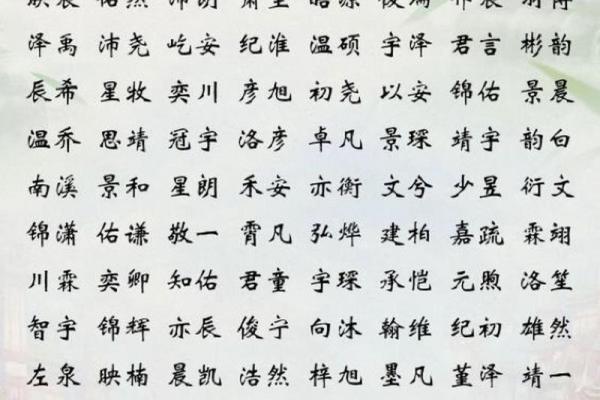 泽禹 沛尧 屹安 纪淮 温硕 宇泽 君言 彬韵
辰希 星牧 奕川 彦旭 初尧 以安 锦佑 景晨
温乔 思靖 冠宇 洛彦 卓凡 景琛 靖宇 韵白
南溪 景和 星朗 禾安 亦衡 文兮 少昱 衍文
锦潇 佑谦 敬一 霄凡 弘烨 建柏 嘉疏 霖翊
川霖 奕卿 知佑 君童 宇琛 承恺 元煦 洛笙
智宇 锦辉 亦辰 俊宁 向沐 翰维 纪初 雄然
左泉 映楠 晨凯 浩然 梓旭 墨凡 堇泽 靖一